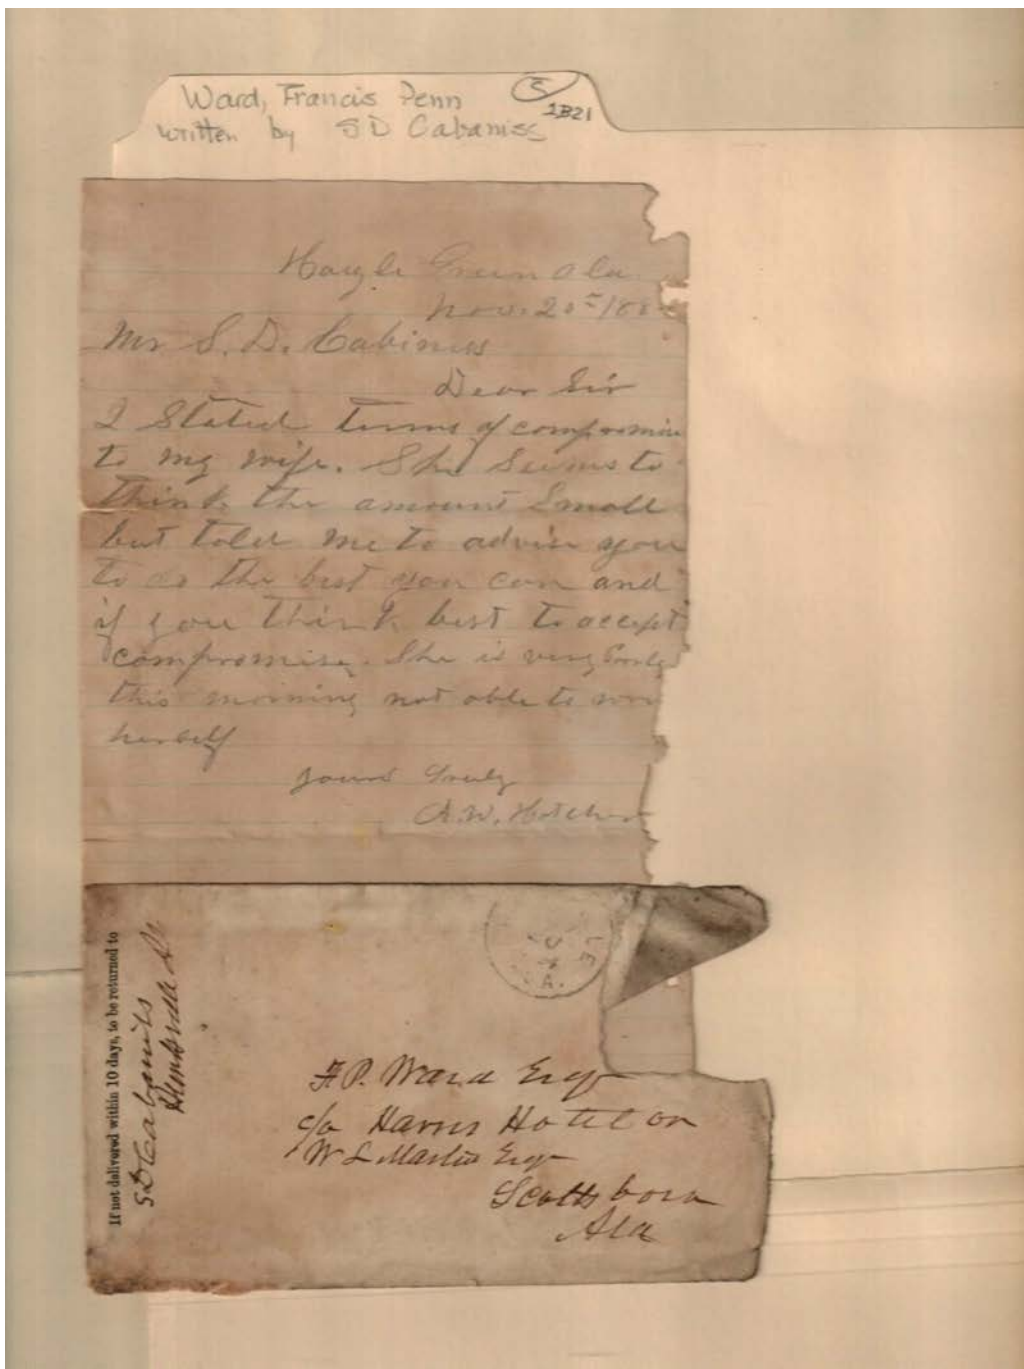 Ward, Francis Penn
written by S D Cabaniss
5
2B21
Hazle Green Ala.
Nov. 20th/188
Mr S. D. Cabiniss
Dear Sir
I Stated terms of compromise
to my wife. She Seems to
think the amount Small
but told me to advise you
to do the best you can and
if you think best to accept
compromise. She is very Poorly
this morning not able to
herself
yours Truly
A. W. Hotch
If not delivered within 10 days, to be returned to
S D Cabaniss
Huntsville Al
LE
A.
F. P. Ward Esqr
c/o Harris Hotel or
W L Martin Esqr
Scottsboro
Ala